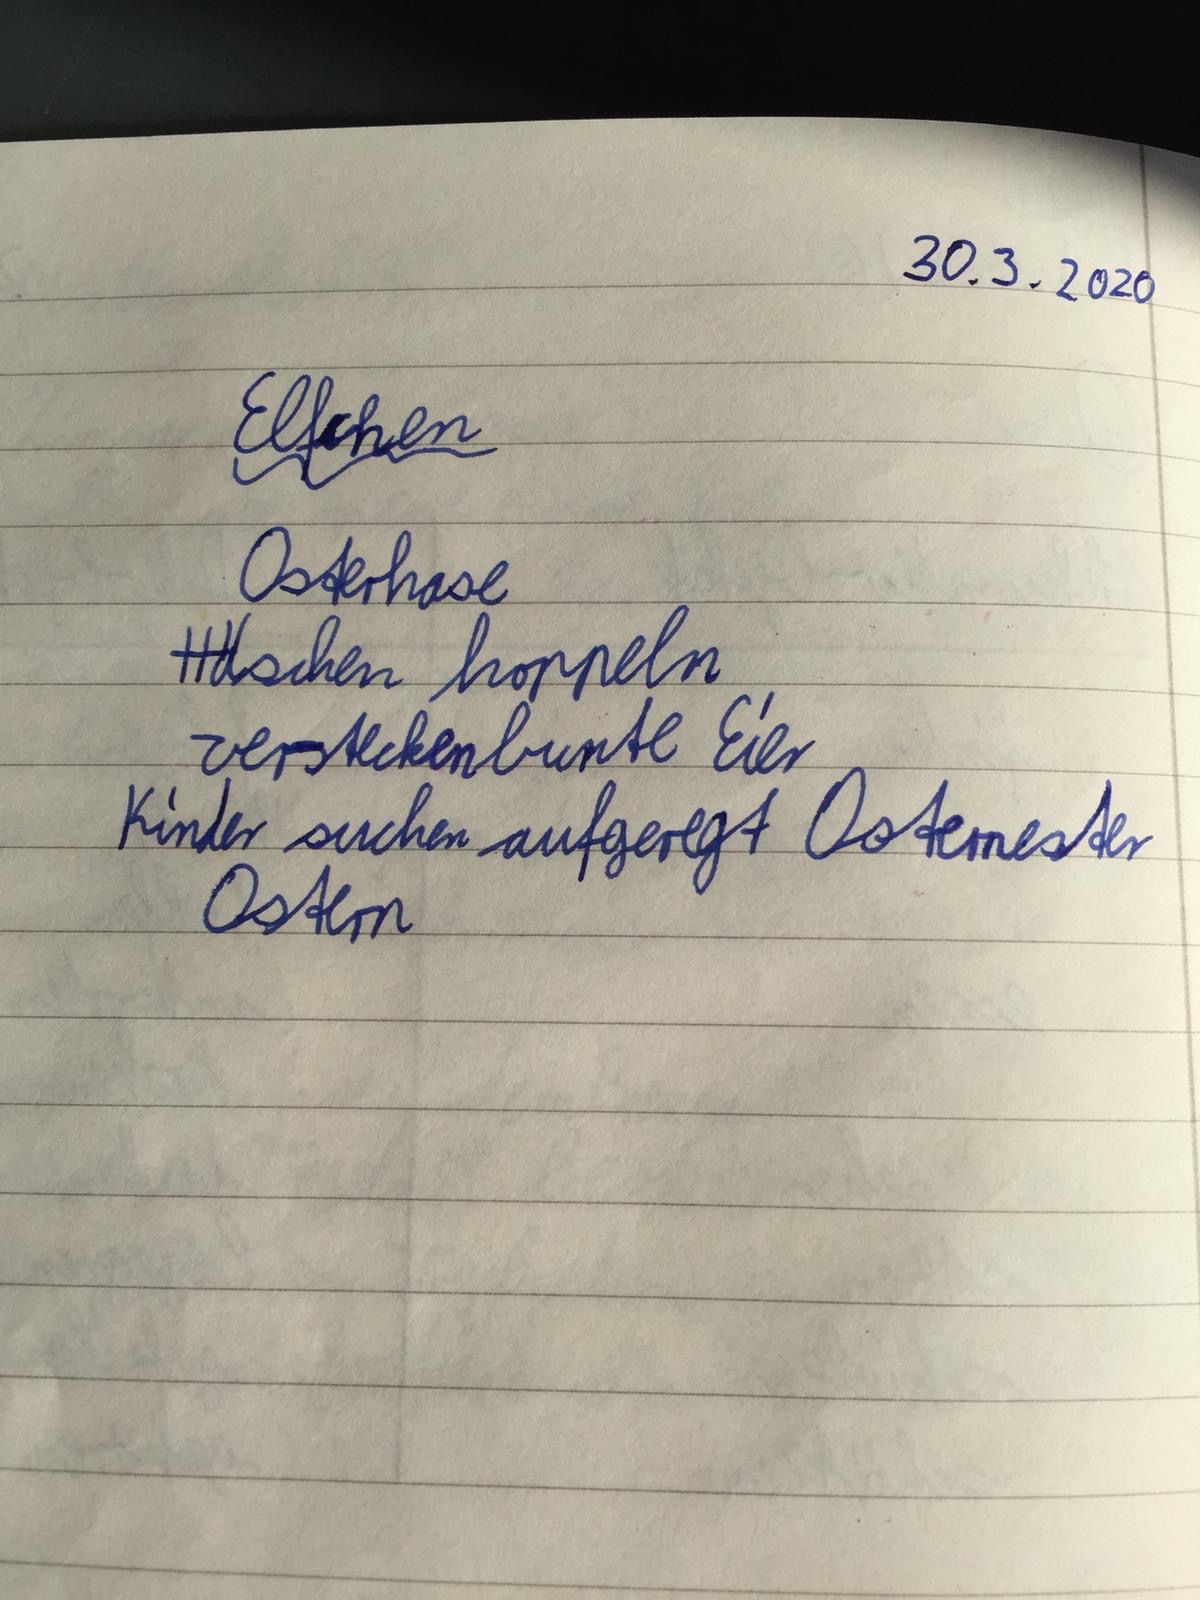 30.3.2020
Elfchen
Osterhase
Häschen hoppeln
verstecken bunte Eier
Kinder suchen aufgeregt Osternester
Ostern